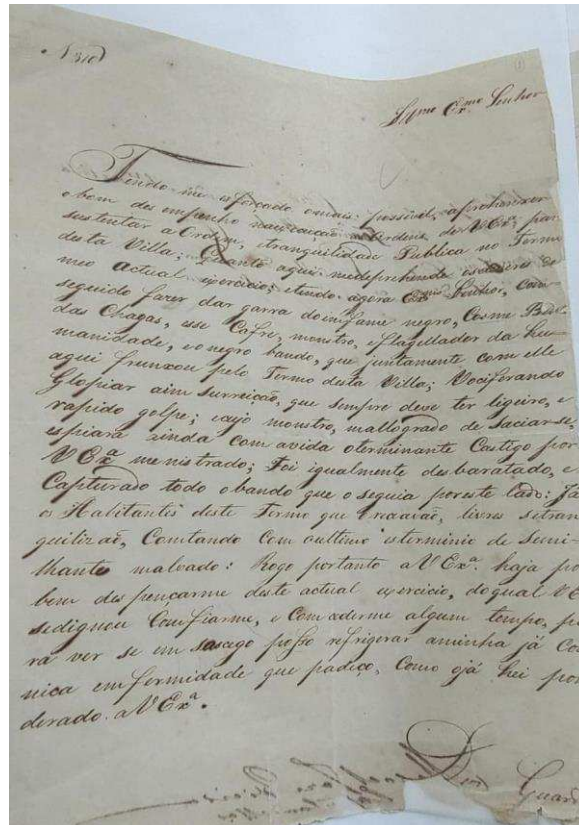 N 310
1
Illmo Exmo Senhor
Tendo me esforçado omais possivel, afrohanxer
obom dezempenho naexcução as Ordens de VExª, par
sustentar a Ordem, etranquilidade Publica no Termo
desta Villa; Quanto aqui medeprehende
meo actual exercicio; etendo agora Exmo Senhor, con
seguido fazer dar garra doenfame negro, Cosme Bent
das Chagas, esse Cafre, monstro, eflagellador da hu
manidade, eonegro bando, que juntamente com elle
aqui frunxou pelo Termo desta Villa; Vociferando
Glopiar ainsurreição, que sempre deve ter ligeiro, e
rapido golpe; cujo monstro, mallogrado de saciarse,
espiará ainda com avida oterminante Castigo por
VExª menistrado; Foi igualmente desbaratado, e
Capturado todo obando que o seguia poreste lado: Já
os Habitantes deste Termo que livres setran
quilizaõ, Comtando Com oultimo esterminio de Semi-
lhante malvado: Rogo portanto a VExª. haja po
bem despencarme deste actual exercicio, doqual VE
sedignou Comfiarme, e Comcederme algum tempo, p
ra ver se em socego poſso refrigerar aminha já Co
nica emfermidade que padeço, Como já hei pon
derado. a VExª.
Deos Guard